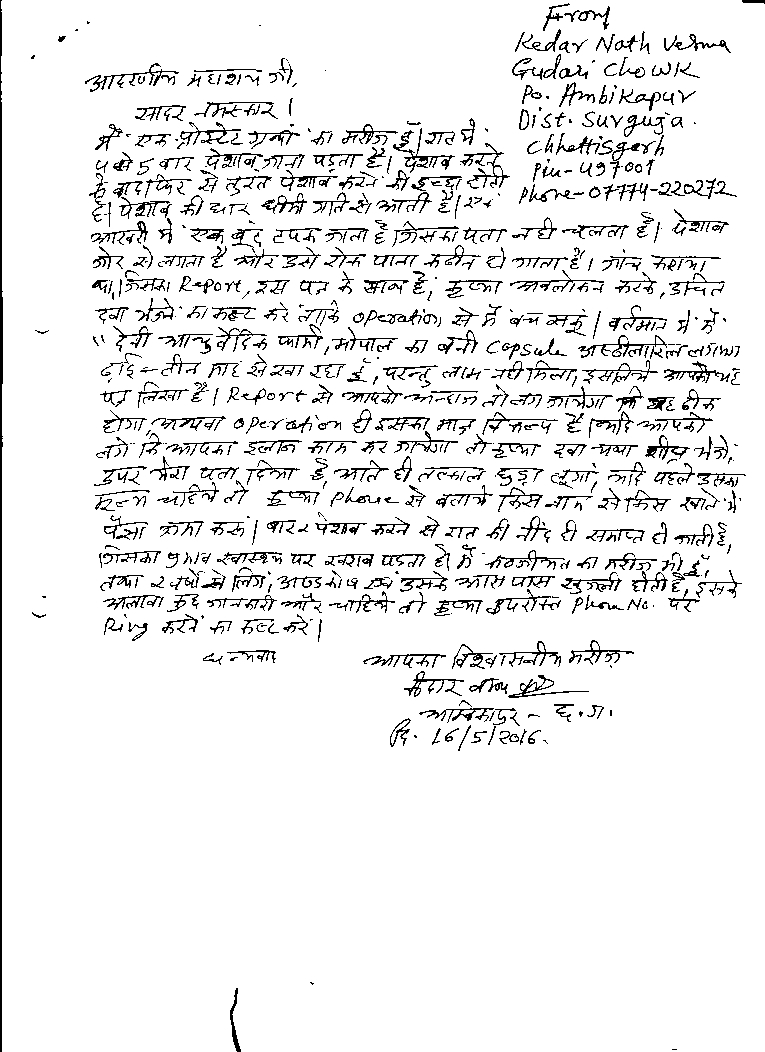 From
Kedar Nath Verma
Gudari Chowk
Po. Ambikapur
Dist. Surguja.
Chhattisgarh
Pin-497001
Phone-07774-220272
आदरणीय महाशय जी,
सादर नमस्कार।
मैं एक प्रोस्टेट ग्रन्थी का मरीज हूँ। रात में
४ से 5 बार पेशाब जाना पड़ता है। पेशाब करने
के बाद फिर से तुरंत पेशाब करने की इच्छा होती
है। पेशाब की धार धीमी गति से आती है। एवं
आखरी में एक बूंद टपक जाता है जिसका पता नही चलता है। पेशाब
जोर से लगता है और उसे रोक पाना कठीन हो जाता है। जांच कराया
था, जिसका Report, इस पत्र के साथ है, कृप्या अवलोकन करके, उचित
दवा भेजने का कष्ट करे ताकि operation से मैं बच सकूं। वर्तमान में मैं
" देनी आयुर्वेदिक फार्मा, भोपाल का बनी Capsule लगभग
ढ़ाई - तीन माह से खा रहा हूँ, परन्तु लाभ नही मिला, इसलिये आपको यह
पत्र लिखा है। Report से आपको अन्दाज तो लग जायेगा कि यह ठीक
होगा, अथवा operation ही इसका मात्र विकल्प है। यदि आपको
लगे कि आपका इलाज काम कर जायेगा तो कृप्या दवा यथा शीघ्र भेजे,
उपर मेरा पता दिया है, आते ही तत्काल छुड़ा लूंगा, यदि पहले उसका
मूल्य चाहिये तो कृप्या Phone से बताये किस नाम से किस खाते में
पैसा जमा करूं। बार २ पेशाब करने से रात की नींद ही समाप्त हो जाती है,
जिसका प्रभाव स्वास्थ्य पर खराब पड़ता है। मैं कब्जीयत का मरीज भी हूँ,
तथा २ वर्षो से लिंग, अण्डकोष एवं उसके आस पास खुजली होती है, इसके
अलावा कुछ जानकारी और चाहिये तो कृप्या उपरोक्त Phone No. पर
Ring करने का कष्ट करे।
धन्यवाद
आपका विश्वासनीय मरीज
केदार नाथ
अम्बिकापुर - छ.ग.
दि. 16/5/2016.